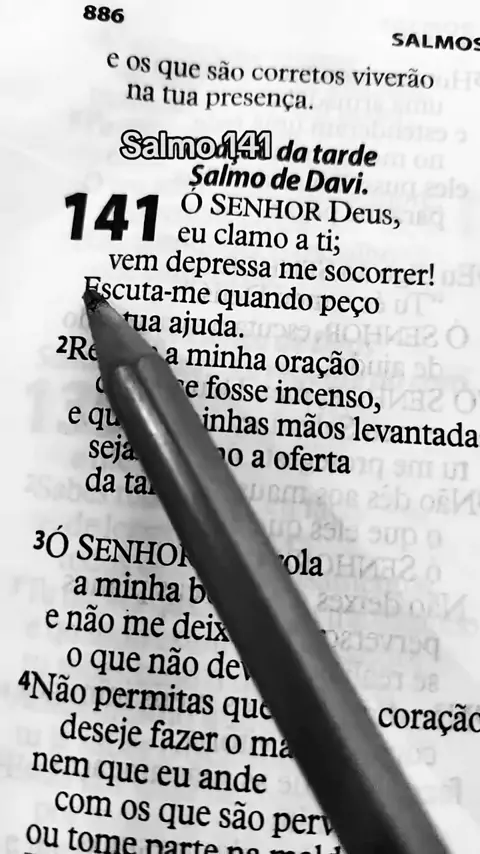 886
SALMOS
e os que são corretos viverão
na tua presença.
Salmo 141
da tarde
Salmo de Davi.
141 Ó SENHOR Deus,
eu clamo a ti;
vem depressa me socorrer!
Escuta-me quando peço
tua ajuda.
2 a minha oração
fosse incenso,
e mãos levantada
a oferta
da
3Ó SENHOR
a minha
e não me
o que não
4Não permitas que coração
deseje fazer o
nem que eu ande
com os que são
ou tome parte